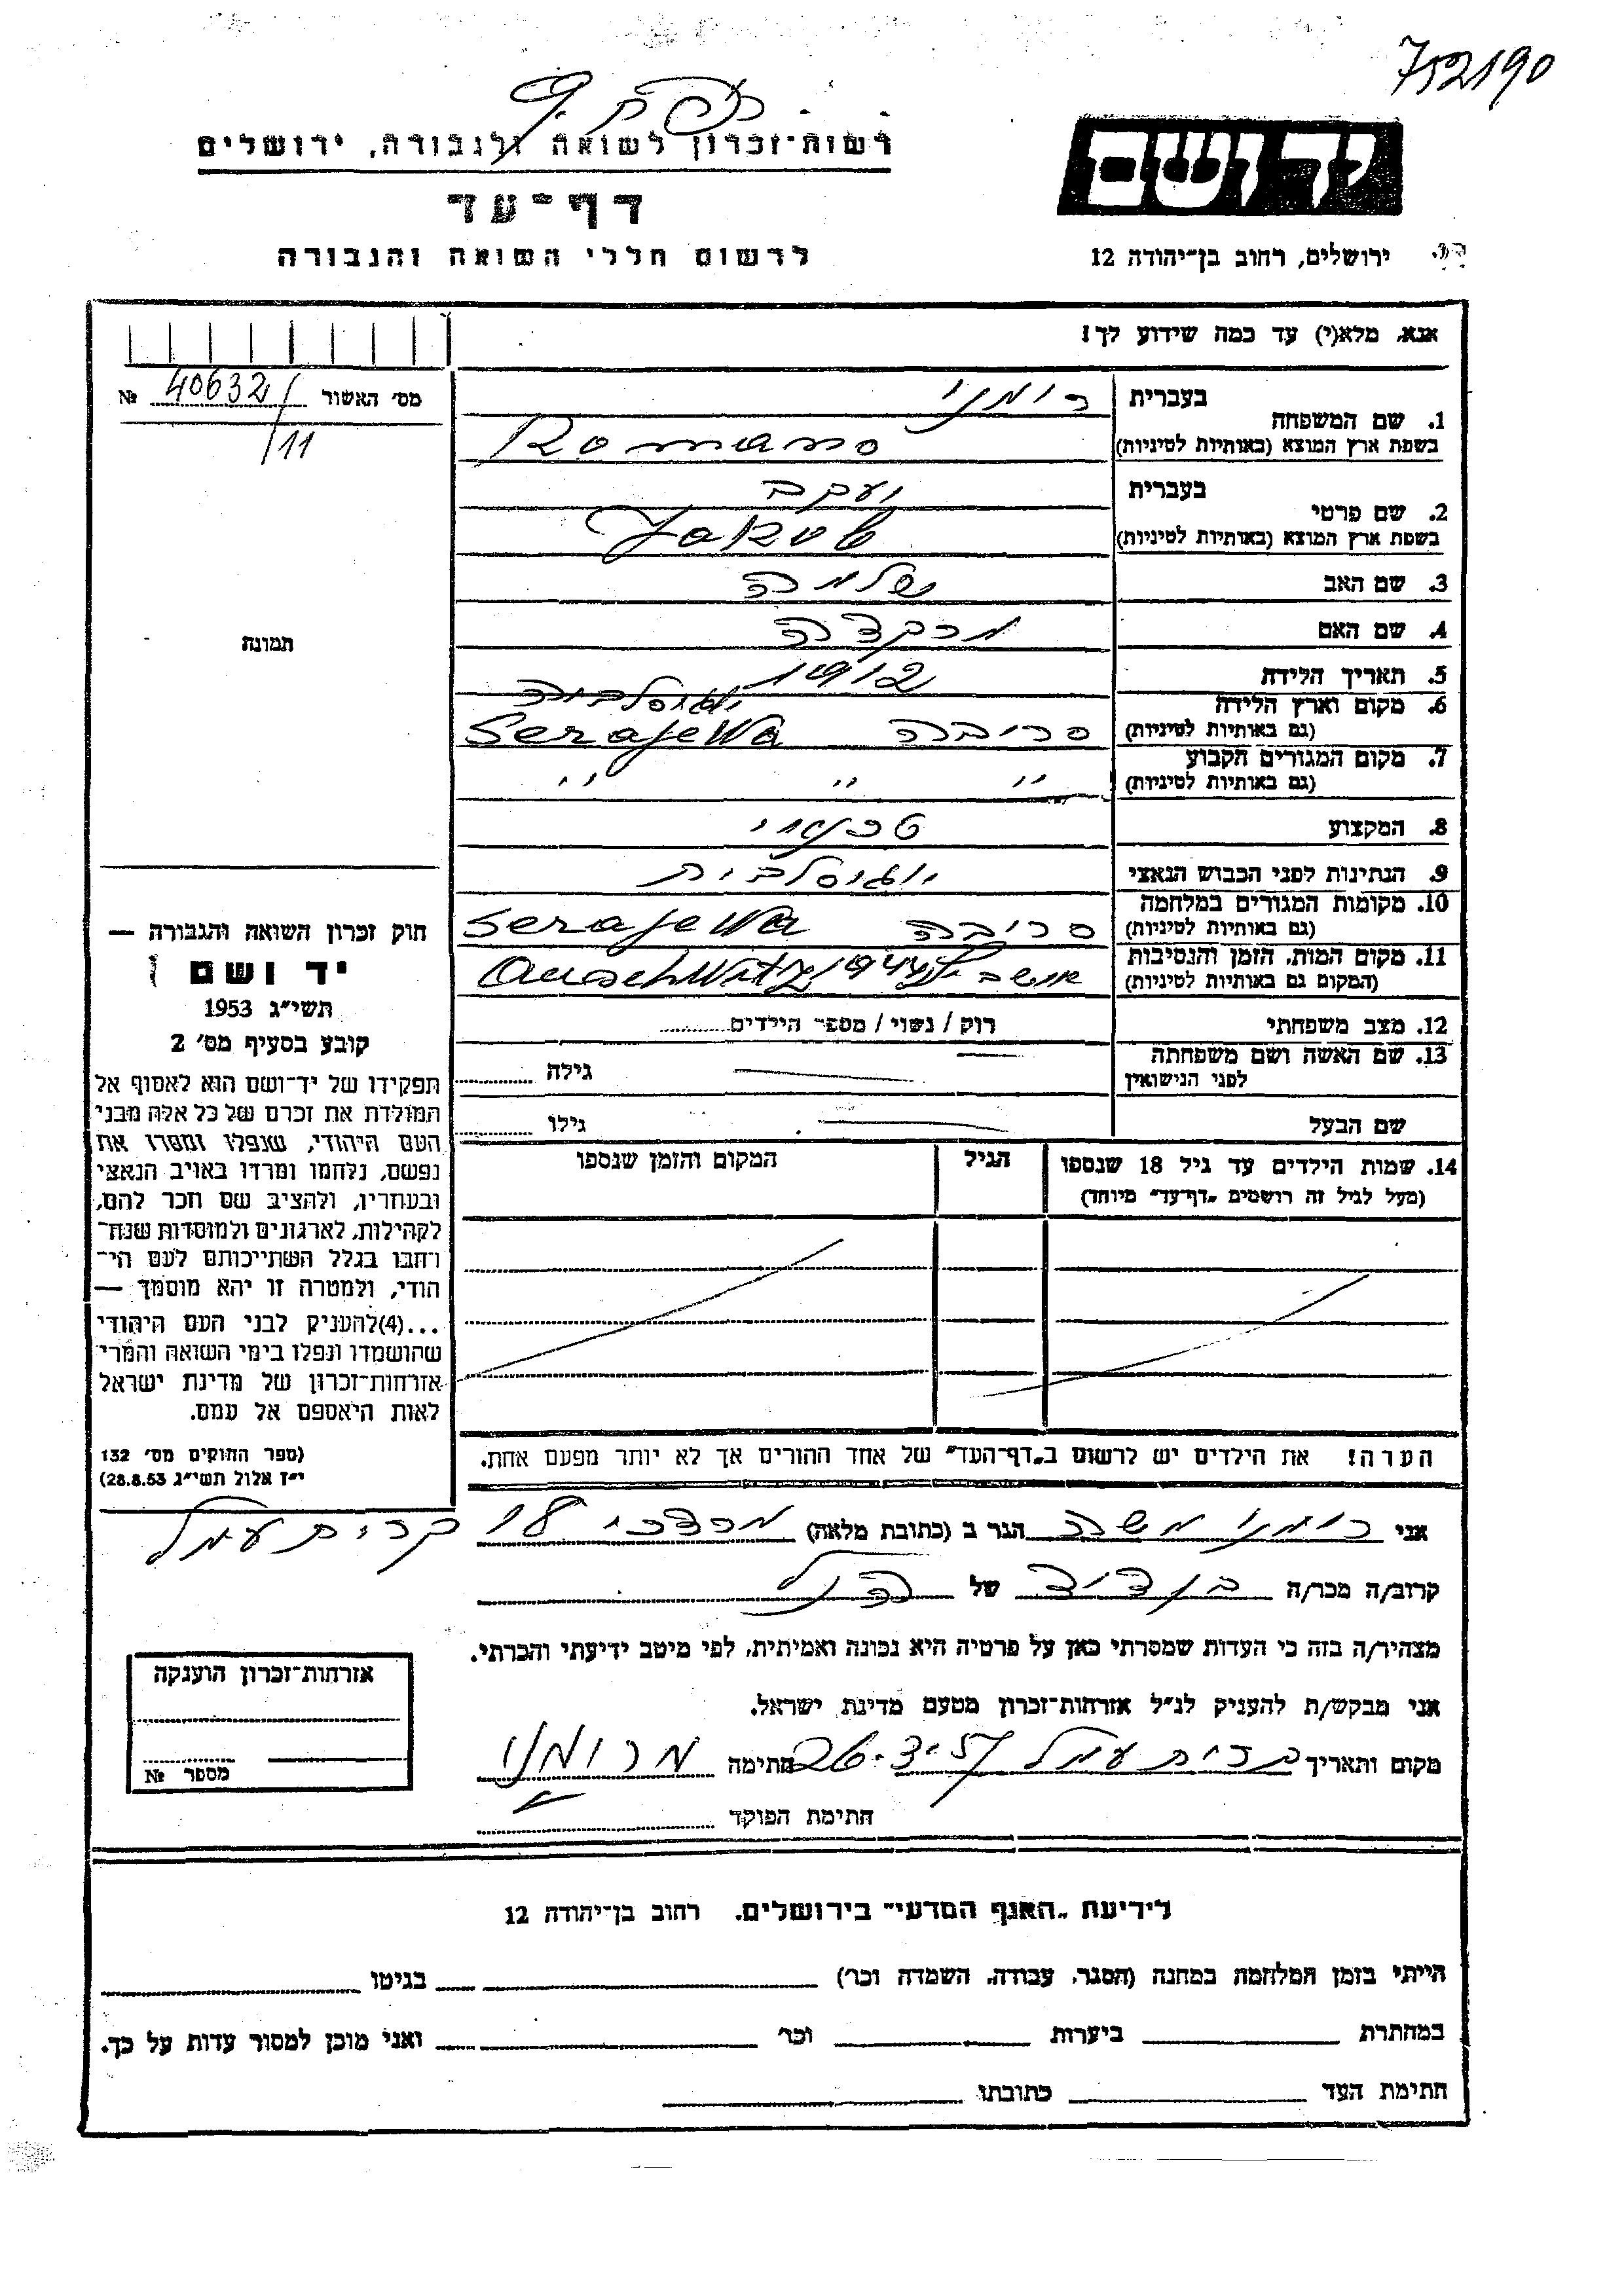 752190
רשות-זכרון לשואה ולגבורה, ירושלים
יד ושם
דף-עד
לרשום חללי השואה והגבורה
ירושלים, רחוב בן-יהודה 12
אנא, מלא(י) עד כמה שידוע לך!
מס' האשור № 40632/
/11
בעברית רומנו
1. שם המשפחה
בשפת ארץ המוצא (באותיות לטיניות) Romano
בעברית יעקב
2. שם פרטי
בשפת ארץ המוצא (באותיות לטיניות) Jakob
3. שם האב שלמה
4. שם האם
תמונה
5. תאריך הלידה 1912
6. מקום וארץ הלידה יוגוסלביה
(גם באותיות לטיניות) Serajewa
7. מקום המגורים הקבוע
(גם באותיות לטיניות) " " "
8. המקצוע טכנאי
9. הנתינות לפני הכבוש הנאצי יוגוסלבית
10. מקומות המגורים במלחמה
(גם באותיות לטיניות) Serajewa
11. מקום המות, הזמן והנסיבות
(המקום גם באותיות לטיניות) Auschwitz 1944
12. מצב משפחתי רוק / נשוי / מספר הילדים
13. שם האשה ושם משפחתה
לפני הנישואין גילה
שם הבעל גילו
14. שמות הילדים עד גיל 18 שנספו הגיל המקום והזמן שנספו
(מעל לגיל זה רושמים "דף-עד" מיוחד)
הערה! את הילדים יש לרשום ב"דף-העד" של אחד ההורים אך לא יותר מפעם אחת.
חוק זכרון השואה והגבורה —
יד ושם
תשי"ג 1953
קובע בסעיף מס' 2
תפקידו של יד-ושם הוא לאסוף אל
המולדת את זכרם של כל אלה מבני
העם היהודי, שנפלו ומסרו את
נפשם, נלחמו ומרדו באויב הנאצי
ובעוזריו, ולהציב שם וזכר להם,
לקהילות, לארגונים ולמוסדות שנח-
רחבו בגלל השתייכותם לעם הי-
הודי, ולמטרה זו יהא מוסמך —
...(4)להעניק לבני העם היהודי
שהושמדו ונפלו בימי השואה והמרי
אזרחות-זכרון של מדינת ישראל
לאות היאספם אל עמם.
(ספר החוקים מס' 132
י"ז אלול תשי"ג 28.8.53)
אני רומנו משה הגר ב (כתובת מלאה) מרדכי 18 קרית עמל
קרוב/ה מכר/ה בן דוד של הנ"ל
מצהיר/ה בזה כי העדות שמסרתי כאן על פרטיה היא נכונה ואמיתית, לפי מיטב ידיעתי והכרתי.
אני מבקש/ת להעניק לנ"ל אזרחות-זכרון מטעם מדינת ישראל.
מקום ותאריך קרית עמל חתימה מ רומנו
חתימת הפוקד
אזרחות-זכרון הוענקה
מספר №
לידיעת "האגף המדעי" בירושלים. רחוב בן-יהודה 12
הייתי בזמן המלחמה במחנה (הסגר, עבודה, השמדה וכר') בגיטו
במחתרת ביערות וכר' ואני מוכן למסור עדות על כך.
חתימת העד כתובתו